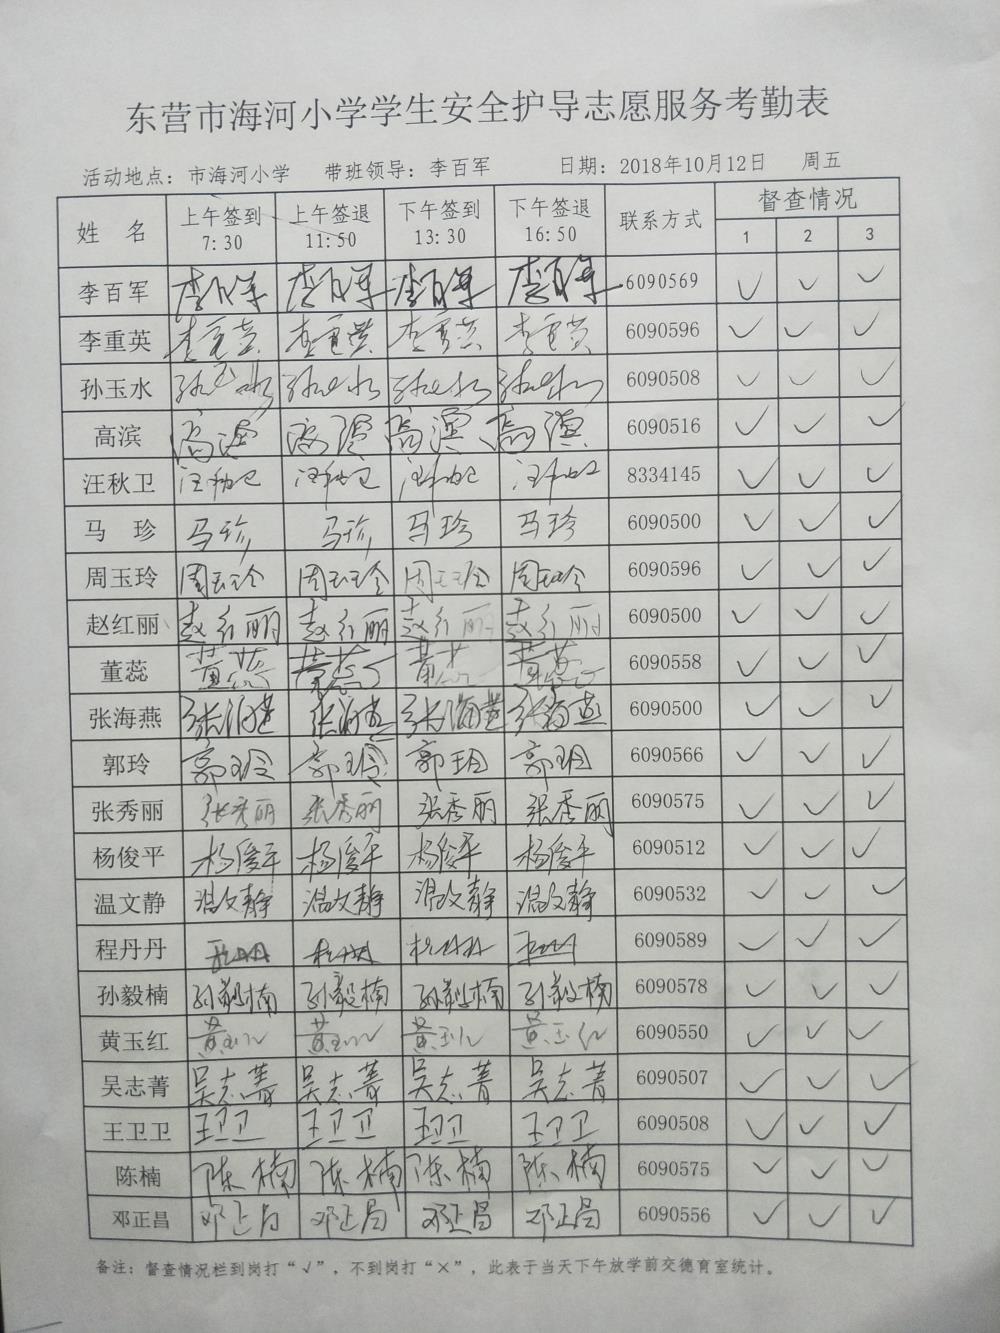 东营市海河小学学生安全护导志愿服务考勤表
活动地点：市海河小学 带班领导：李百军 日期：2018年10月12日 周五
姓 名 上午签到 7:30 上午签退 11:50 下午签到 13:30 下午签退 16:50 联系方式 督查情况 1 2 3
李百军 李百军 李百军 李百军 李百军 6090569 ✓ ✓ ✓
李重英 李重英 李重英 李重英 李重英 6090596 ✓ ✓ ✓
孙玉水 孙玉水 孙玉水 孙玉水 孙玉水 6090508 ✓ ✓ ✓
高滨 高滨 高滨 高滨 高滨 6090516 ✓ ✓ ✓
汪秋卫 汪秋卫 汪秋卫 汪秋卫 汪秋卫 8334145 ✓ ✓ ✓
马 珍 马珍 马珍 马珍 马珍 6090500 ✓ ✓ ✓
周玉玲 周玉玲 周玉玲 周玉玲 周玉玲 6090596 ✓ ✓ ✓
赵红丽 赵红丽 赵红丽 赵红丽 赵红丽 6090500 ✓ ✓ ✓
董蕊 董蕊 董蕊 董蕊 董蕊 6090558 ✓ ✓ ✓
张海燕 张海燕 张海燕 张海燕 张海燕 6090500 ✓ ✓ ✓
郭玲 郭玲 郭玲 郭玲 郭玲 6090566 ✓ ✓ ✓
张秀丽 张秀丽 张秀丽 张秀丽 张秀丽 6090575 ✓ ✓ ✓
杨俊平 杨俊平 杨俊平 杨俊平 杨俊平 6090512 ✓ ✓ ✓
温文静 温文静 温文静 温文静 温文静 6090532 ✓ ✓ ✓
程丹丹 程丹丹 程丹丹 程丹丹 程丹丹 6090589 ✓ ✓ ✓
孙毅楠 孙毅楠 孙毅楠 孙毅楠 孙毅楠 6090578 ✓ ✓ ✓
黄玉红 黄玉红 黄玉红 黄玉红 黄玉红 6090550 ✓ ✓ ✓
吴志菁 吴志菁 吴志菁 吴志菁 吴志菁 6090507 ✓ ✓ ✓
王卫卫 王卫卫 王卫卫 王卫卫 王卫卫 6090508 ✓ ✓ ✓
陈楠 陈楠 陈楠 陈楠 陈楠 6090575 ✓ ✓ ✓
邓正昌 邓正昌 邓正昌 邓正昌 邓正昌 6090556 ✓ ✓ ✓
备注：督查情况栏到岗打“√”，不到岗打“×”，此表于当天下午放学前交德育室统计。